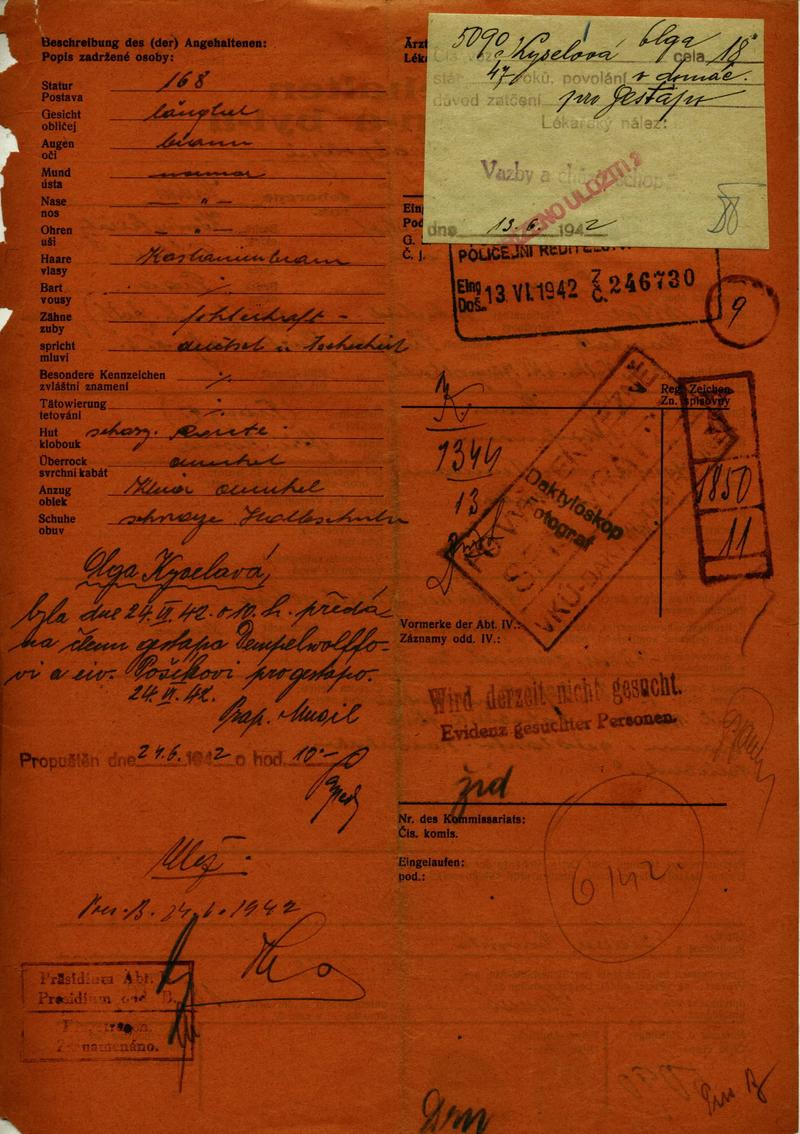 Beschreibung des (der) Angehaltenen:
Popis zadržené osoby:
Statur 168
Postava
Gesicht länglich
obličej
Augen braun
oči
Mund normal
ústa
Nase — „ —
nos
Ohren — „ —
uši
Haare Kastanienbraun
vlasy
Bart ·/·
vousy
Zähne fehlerhaft -
zuby
spricht deutsch u tschechisch
mluví
Besondere Kennzeichen ·/·
zvláštní znamení
Tätowierung ·/·
tetování
Hut schwarz.
klobouk
Überrock dunkel
svrchní kabát
Anzug Kleid dunkel
oblek
Schuhe schwarze Halbschuhe
obuv
Olga Kyselová
byla dne 24.VI.42. o 10. h. předá-
na členu gestapa Dempelwolffo-
vi a civ. Pošíkovi pro gestapo.
24.VI.42.
Prap. Musil
Propuštěn dne 24.6. 1942 o hod. 10-
Ulož.
Pres.B. 24.6.1942
Präsidium Abt.
Presidium odd. B.
Eingetragen.
Zaznamenáno.
5090 Kyselová Olga cela 18
stár 47 roků, povolání v domác.
důvod zatčení pro Gestapo
Lékařský nález:
Vazby a chůze schop.
ULOŽITI?
dne 13.6. 1942
Ärzt
Léka
Eing
Pod
G.
Č. j.
POLICEJNÍ ŘEDITELSTV
Eing. 13.VI.1942 Z. 246730
Doš. Č.
9
K.
1344
13
Reg. Zeichen
Zn. spisovny
1850
11
Daktyloskop
Fotograf
Vormerke der Abt. IV.:
Záznamy odd. IV.:
Wird derzeit nicht gesucht.
Evidenz gesuchter Personen.
žid
Nr. des Kommissariats:
Čís. komis.
Eingelaufen:
pod.:
6/42